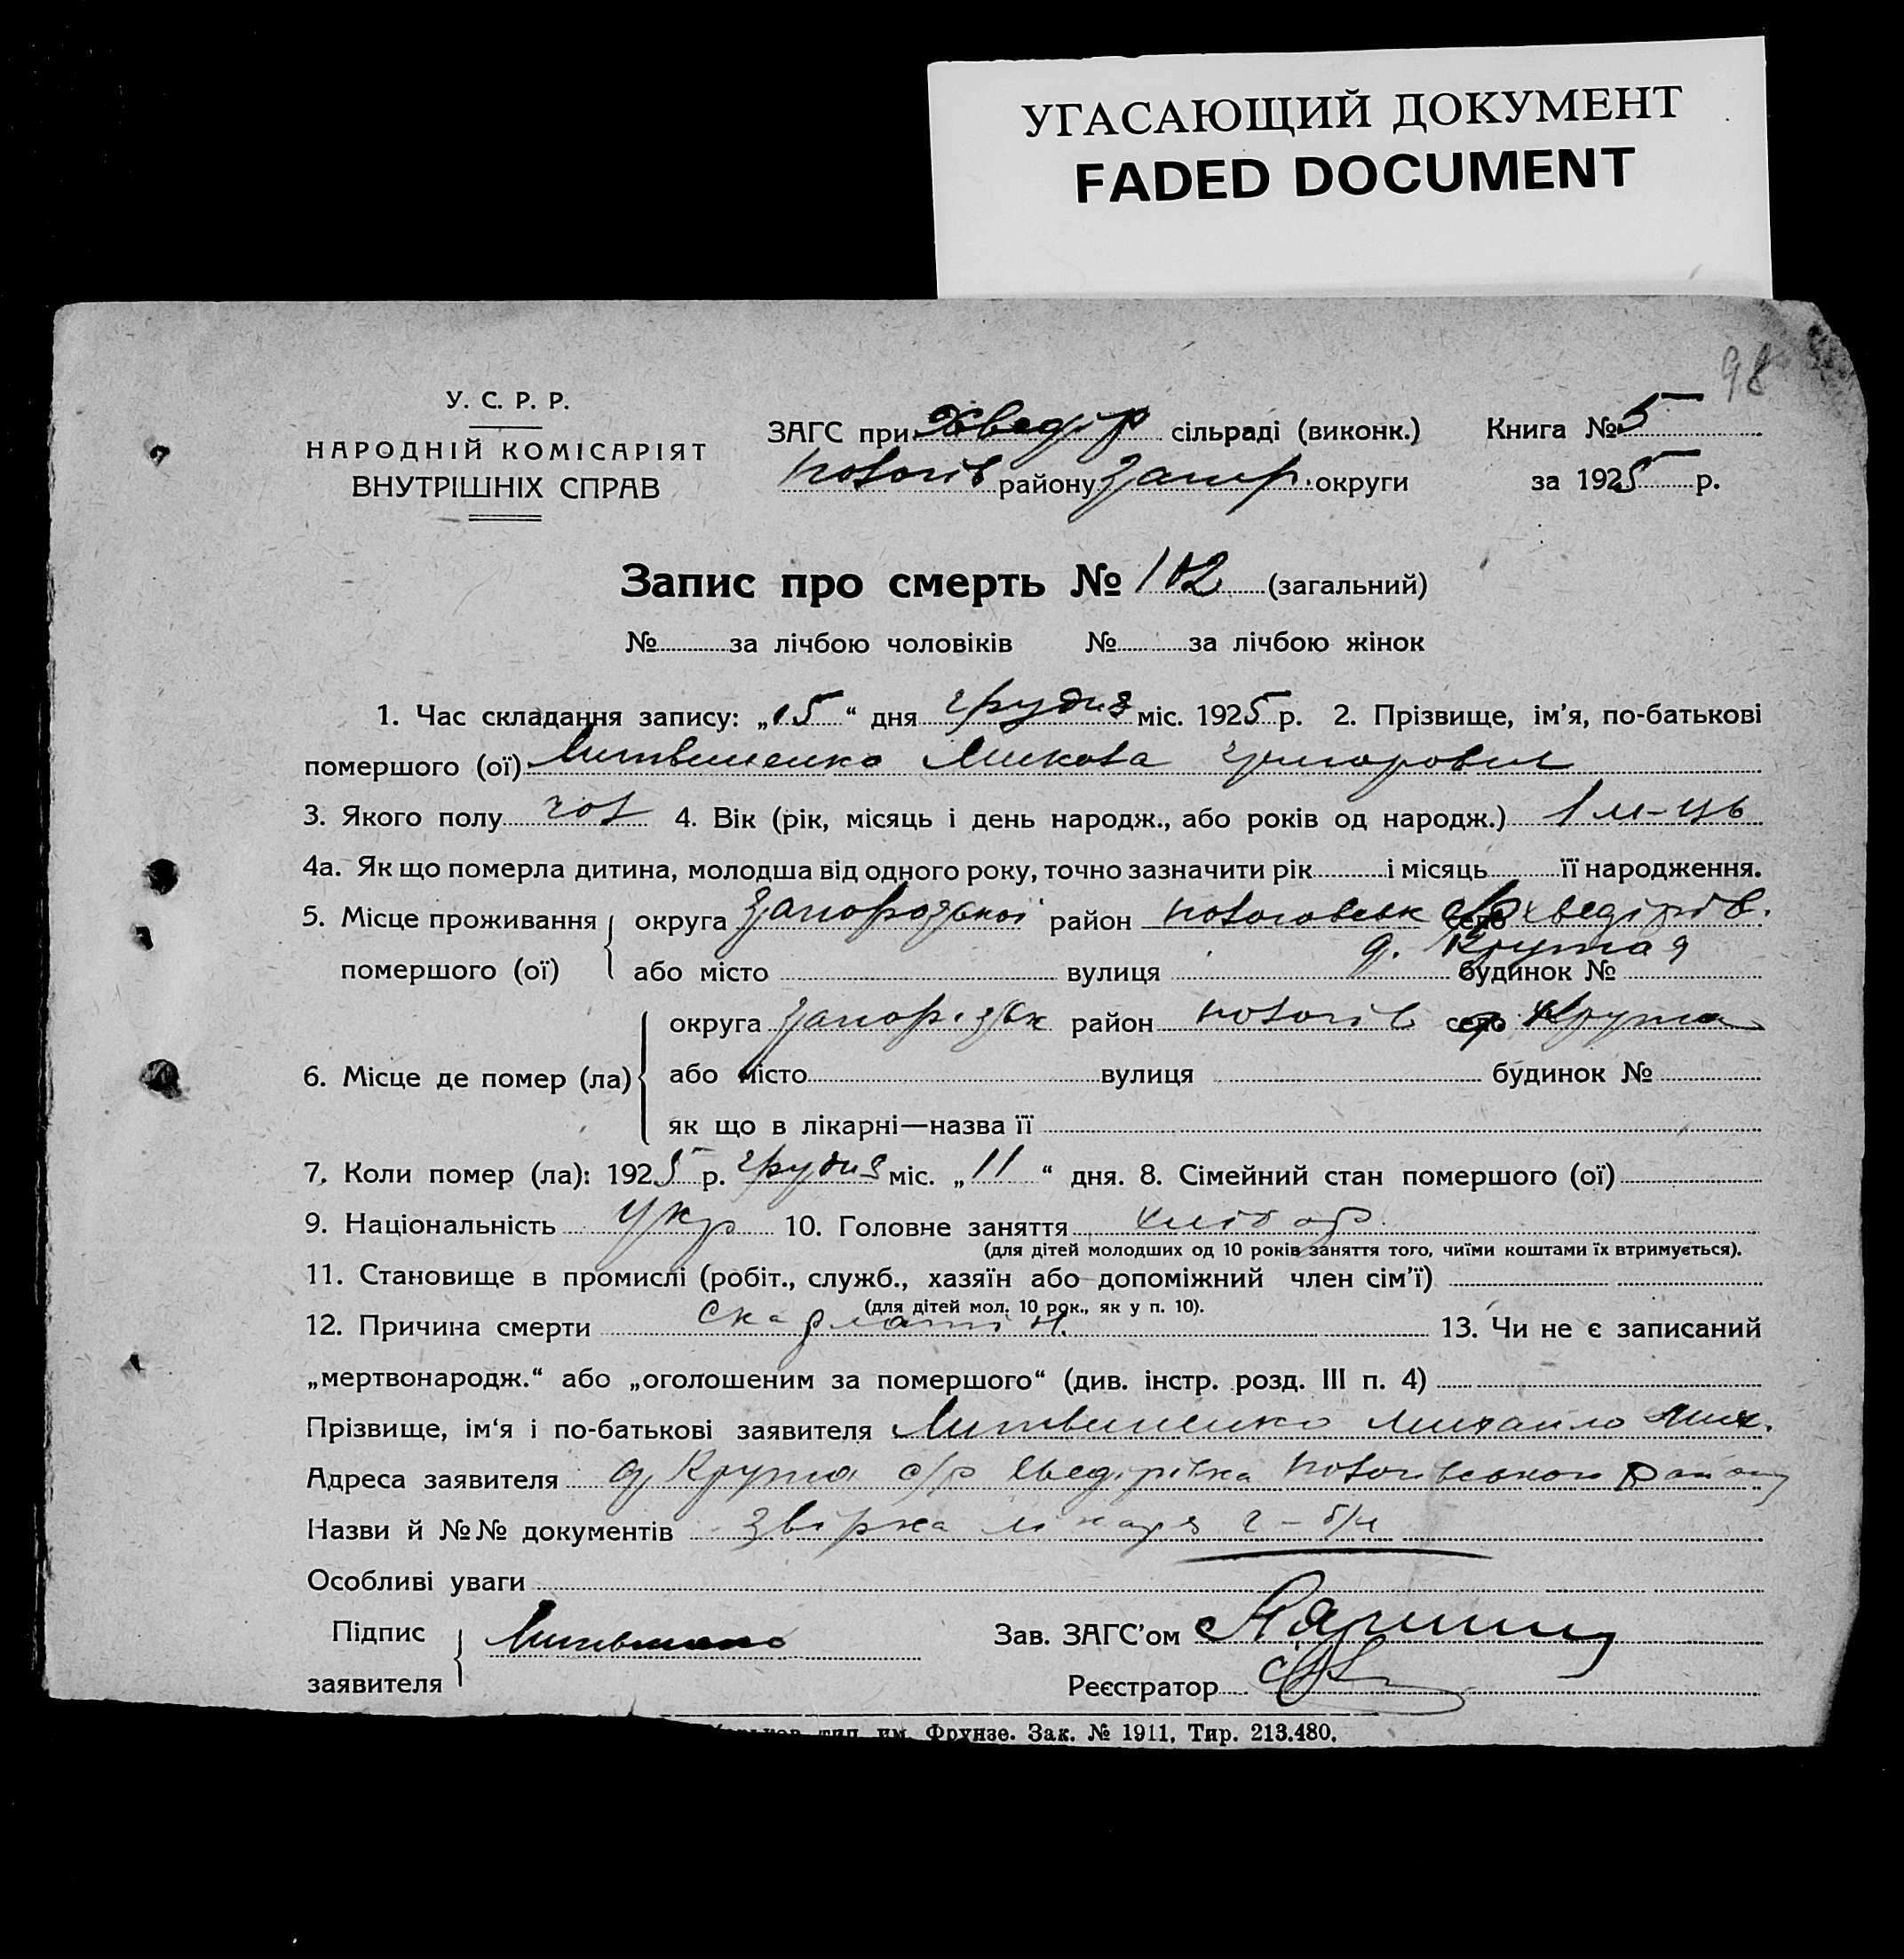 УГАСАЮЩИЙ ДОКУМЕНТ
FADED DOCUMENT
98
У. С. Р. Р.
НАРОДНІЙ КОМІСАРІЯТ
ВНУТРІШНІХ СПРАВ
ЗАГС при Хведір сільраді (виконк.) Книга № 5
Пологів району Запор. округи за 1925 р.
Запис про смерть № 102 (загальний)
№ за лічбою чоловіків № за лічбою жінок
1. Час складання запису: „15“ дня грудня міс. 1925 р. 2. Прізвище, ім'я, по-батькові
помершого (ої) Литвиненко Микола Григорович
3. Якого полу чол 4. Вік (рік, місяць і день народж., або років од народж.) 1 м-ць
4а. Як що померла дитина, молодша від одного року, точно зазначити рік і місяць її народження.
5. Місце проживання округа Запорозької район Пологовськ село с/р Хведірів.
д. Крутая
помершого (ої) або місто вулиця будинок №
округа Запоріжк район Пологів село Крута
6. Місце де помер (ла) або місто вулиця будинок №
як що в лікарні—назва її
7. Коли помер (ла): 1925 р. грудня міс. „11“ дня. 8. Сімейний стан помершого (ої)
9. Національність Укр 10. Головне заняття хлібор
(для дітей молодших од 10 років заняття того, чиїми коштами їх втримується).
11. Становище в промислі (робіт., служб., хазяїн або допоміжний член сім'ї)
(для дітей мол. 10 рок., як у п. 10).
12. Причина смерти скарлатін. 13. Чи не є записаний
„мертвонародж.“ або „оголошеним за помершого“ (див. інстр. розд. III п. 4)
Прізвище, ім'я і по-батькові заявителя Литвиненко Михайло Мих.
Адреса заявителя д. Крута с/р Хведірівка Пологівського району
Назви й №№ документів лікаря б/н
Особливі уваги
Підпис Литвиненко Зав. ЗАГС'ом
заявителя Реєстратор
тип. им. Фрунзе. Зак. № 1911. Тир. 213.480.